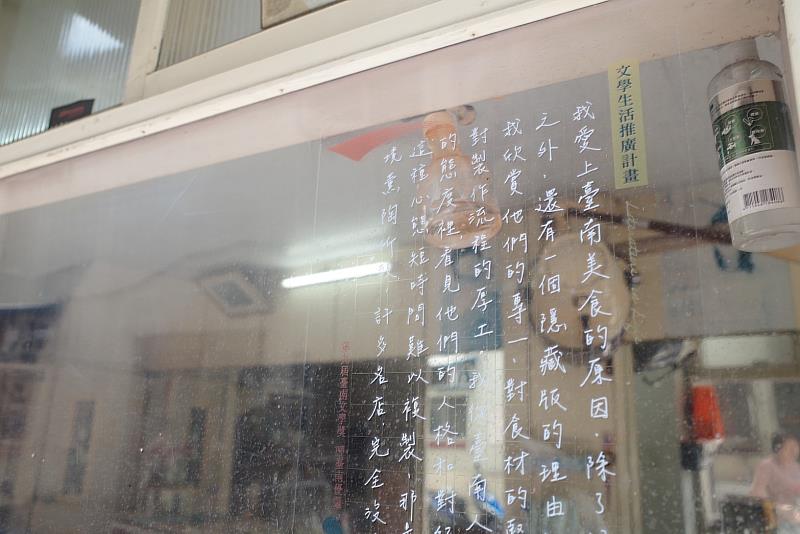 文學生活推廣計畫
我愛上臺南美食的原因，除了
之外，還有一個隱藏版的理由
我欣賞他們的專一、對食材的堅
對製作流程的厚工，我從臺南人
的態度裡看見他們的人格和對
這種心態短時間難以複製，那
境薰陶
許多名店，完全沒
臺南文學獎